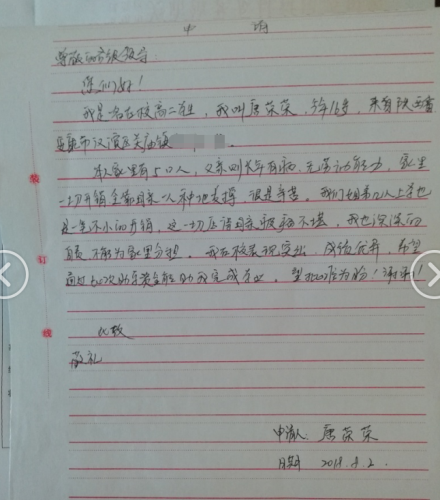 申请
尊敬的各级领导:
您们好!
我是一名在校高二学生,我叫唐荣荣,今年16岁,来自陕西省
安康市汉滨区关庙镇
我家里有5口人,父亲因长年有病,无劳动能力,家里
一切开销全靠母亲一人种地支撑,很是辛苦,我们姐弟几人上学也
是一笔不小的开销,这一切压得母亲疲惫不堪,我也深深的
自责,不能为家里分担,我在校表现突出,成绩优异,希望
通过此次助学奖金能助我完成学业,望批准为盼!谢谢!
此致
敬礼
装
订
线
申请人 唐荣荣
日期 2018.8.2.